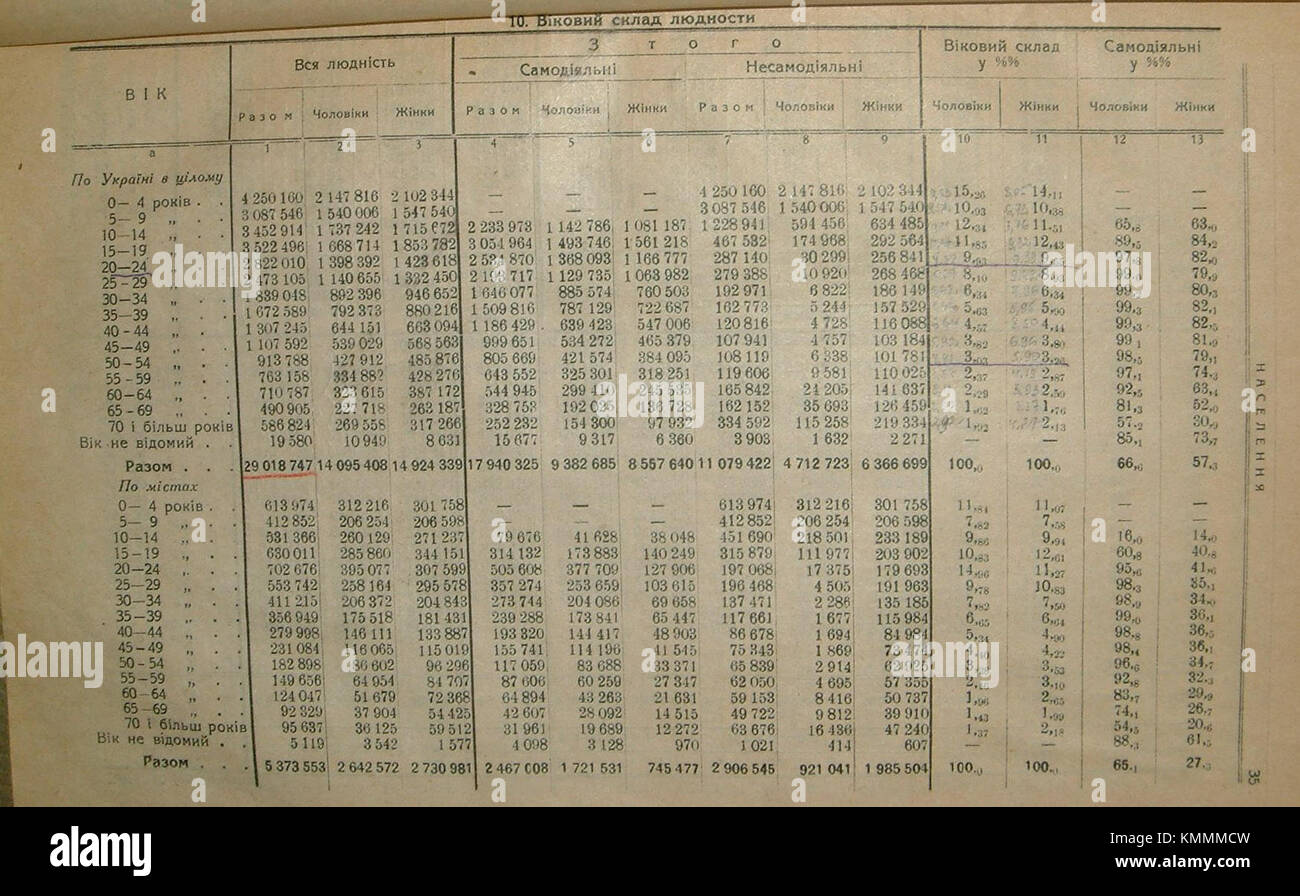 10. Віковий склад людности
ВІК
Вся людність
З того
Віковий склад у %%
Самодіяльні у %%
Самодіяльні
Несамодіяльні
Разом Чоловіки Жінки Разом Чоловіки Жінки Разом Чоловіки Жінки Чоловіки Жінки Чоловіки Жінки
а 1 2 3 4 5 6 7 8 9 10 11 12 13
По Україні в цілому
0— 4 років . . 4 250 160 2 147 816 2 102 344 — — — 4 250 160 2 147 816 2 102 344 15,26 14,11 — —
5— 9 „ . . 3 087 546 1 540 006 1 547 540 — — — 3 087 546 1 540 006 1 547 540 10,93 10,38 — —
10—14 „ . . 3 452 914 1 737 242 1 715 672 2 233 973 1 142 786 1 081 187 1 228 941 594 456 634 485 12,34 11,51 65,8 63,0
15—19 „ . . 3 522 496 1 668 714 1 853 782 3 054 964 1 493 746 1 561 218 467 532 174 968 292 564 11,85 12,43 89,5 84,2
20—24 „ . . 2 822 010 1 398 392 1 423 618 2 534 870 1 368 093 1 166 777 287 140 30 299 256 841 9,93 97,8 82,0
25—29 „ . . 2 473 105 1 140 655 1 332 450 1 129 735 1 063 982 279 388 10 920 268 468 8,10 99,0 79,9
30—34 „ . . 839 048 892 396 946 652 1 646 077 885 574 760 503 192 971 6 822 186 149 6,34 6,34 99,2 80,3
35—39 „ . . 1 672 589 792 373 880 216 1 509 816 787 129 722 687 162 773 5 244 157 529 5,63 5,90 99,3 82,1
40-44 „ . . 1 307 245 644 151 663 094 1 186 429 639 423 547 006 120 816 4 728 116 088 4,57 4,44 99,3 82,5
45—49 „ . . 1 107 592 539 029 568 563 999 651 534 272 465 379 107 941 4 757 103 184 3,82 3,80 99,1 81,9
50—54 „ . . 913 788 427 912 485 876 805 669 421 574 384 095 108 119 6 338 101 781 3,03 3,26 98,5 79,1
55—59 „ . . 763 158 334 882 428 276 643 552 325 301 318 251 119 606 9 581 110 025 2,37 2,87 97,1 74,3
60—64 „ . . 710 787 323 615 387 172 544 945 299 410 245 535 165 842 24 205 141 637 2,29 2,59 92,5 63,4
65-69 „ . . 490 905 227 718 263 187 328 753 192 025 136 728 162 152 35 693 126 459 1,62 1,76 81,3 52,0
70 і більш років 586 824 269 558 317 266 252 232 154 300 97 932 334 592 115 258 219 334 1,92 2,13 57,2 30,9
Вік не відомий . . 19 580 10 949 8 631 15 677 9 317 6 360 3 903 1 632 2 271 — — 85,1 73,7
Разом . . . 29 018 747 14 095 408 14 924 339 17 940 325 9 382 685 8 557 640 11 079 422 4 712 723 6 366 699 100,0 100,0 66,6 57,3
По містах
0— 4 років . . 613 974 312 216 301 758 — — — 613 974 312 216 301 758 11,84 11,07 — —
5— 9 „ . . 412 852 206 254 206 598 — — — 412 852 206 254 206 598 7,82 7,58 — —
10—14 „ . . 531 366 260 129 271 237 79 676 41 628 38 048 451 690 218 501 233 189 9,86 9,94 16,0 14,0
15-19 „ . . 630 011 285 860 344 151 314 132 173 883 140 249 315 879 111 977 203 902 10,83 12,61 60,8 40,8
20—24 „ . . 702 676 395 077 307 599 505 608 377 709 127 906 197 068 17 375 179 693 14,96 11,27 95,6 41,6
25—29 „ . . 553 742 258 164 295 578 357 274 253 659 103 615 196 468 4 505 191 963 9,78 10,83 98,3 35,1
30—34 „ . . 411 215 206 372 204 843 273 744 204 086 69 658 137 471 2 286 135 185 7,82 7,50 98,9 34,0
35—39 „ . . 356 949 175 518 181 431 239 288 173 841 65 447 117 661 1 677 115 984 6,65 6,64 99,0 36,1
40—44 „ . . 279 998 146 111 133 887 193 320 144 417 48 903 86 678 1 694 84 984 5,34 4,90 98,8 36,5
45-49 „ . . 231 084 116 065 115 019 155 741 114 196 41 545 75 343 1 869 73 474 4,40 4,22 98,4 36,1
50-54 „ . . 182 898 86 602 96 296 117 059 83 688 33 371 65 839 2 914 62 925 3,53 96,6 34,7
55—59 „ . . 149 656 64 954 84 707 87 606 60 259 27 347 62 050 4 695 57 355 3,10 92,8 32,3
60—64 „ . . 124 047 51 679 72 368 64 894 43 263 21 631 59 153 8 416 50 737 1,96 2,65 83,7 29,9
65—69 „ . . 92 329 37 904 54 425 42 607 28 092 14 515 49 722 9 812 39 910 1,43 1,99 74,1 26,7
70 і більш років 95 637 36 125 59 512 31 961 19 689 12 272 63 676 16 436 47 240 1,37 2,18 54,5 20,6
Вік не відомий . . 5 119 3 542 1 577 4 098 3 128 970 1 021 414 607 — — 88,3 61,5
Разом . . . 5 373 553 2 642 572 2 730 981 2 467 008 1 721 531 745 477 2 906 545 921 041 1 985 504 100,0 100,0 65,1 27,3
НАСЕЛЕННЯ
35
alamy
Image ID: KMMMCW
www.alamy.com